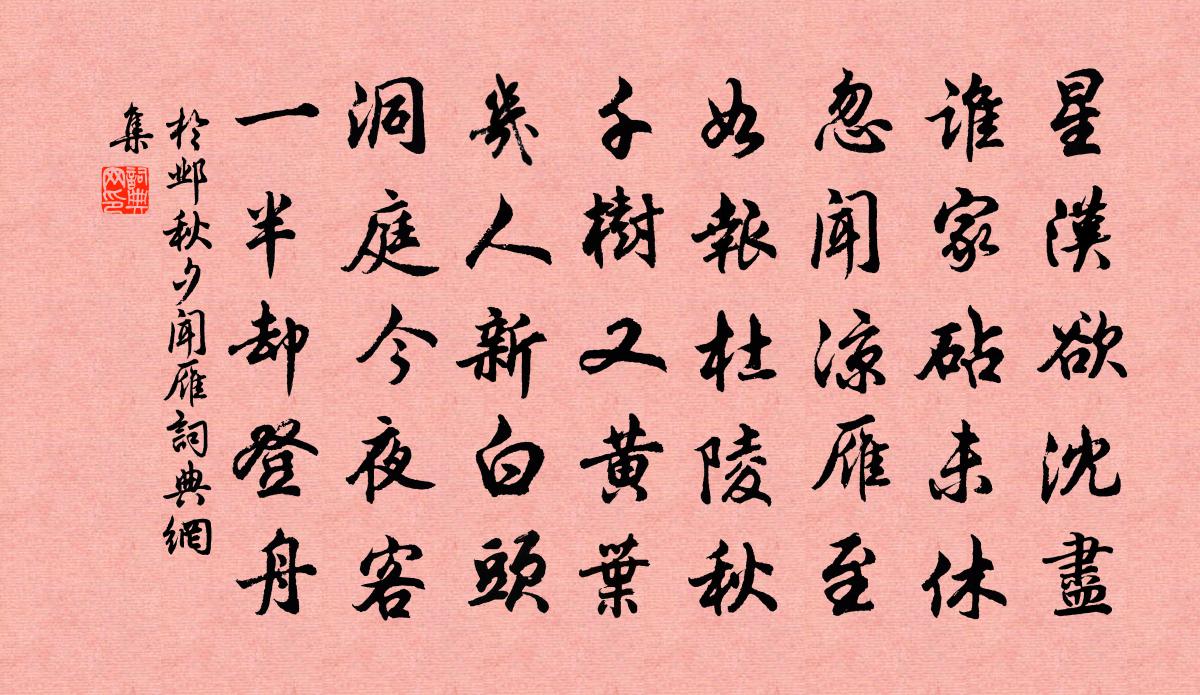 星漢欲沈盡
誰家砧未休
忽聞涼雁至
如報杜陵秋
千樹又黃葉
幾人新白頭
洞庭今夜客
一半却登舟
於鄴秋夕聞雁詞典網
集
詞典網印